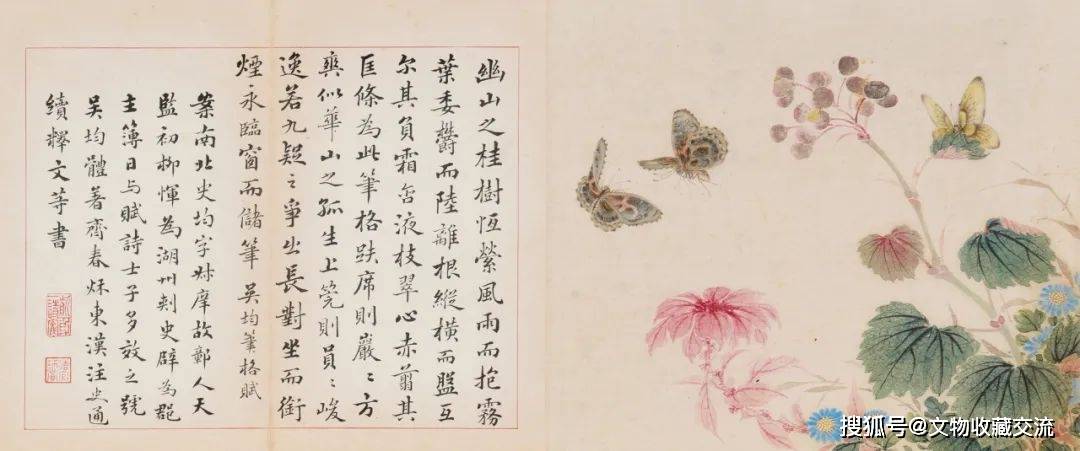 幽山之桂樹恆縈風雨而抱霧
葉委欝而陸離根縱橫而盤互
尔其負霜含液枝翠心赤翦其
巨條為此筆格趺席則巖〻方
爽似華山之孤生上筦則員〻峻
逸若九疑之爭出長對坐而銜
煙永臨窗而儲筆 吳均筆格賦
案南北史均字叔庠故鄣人天
監初柳惲為湖州刺史辟為郡
主簿日与賦詩士子多效之號
吳均體著齊春秌東漢注史通
續釋文等書
搜狐号@文物收藏交流